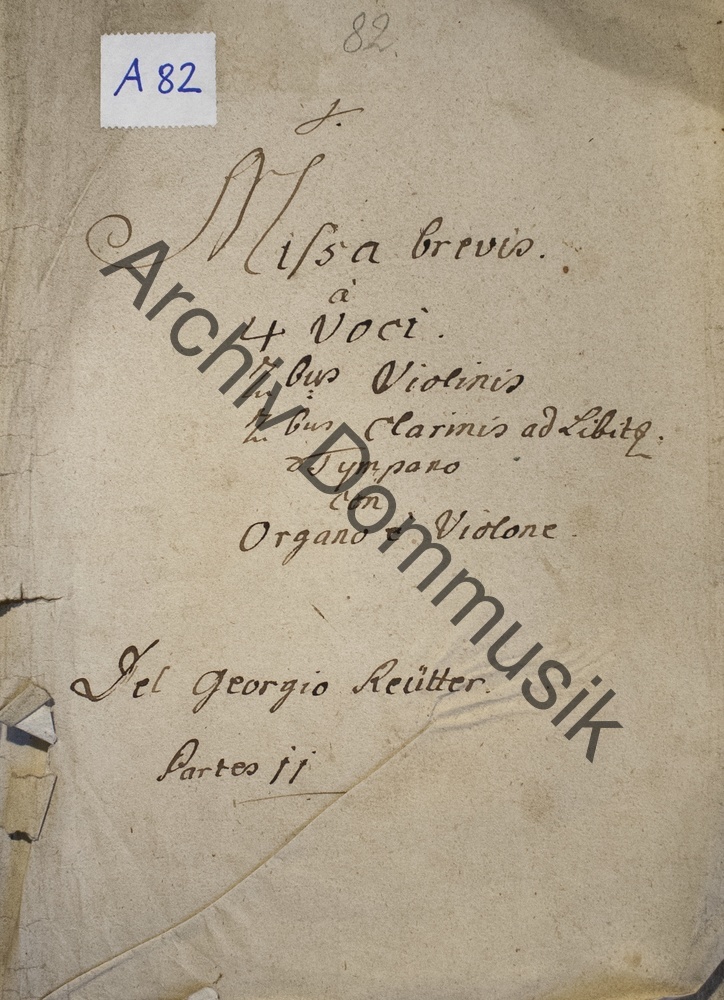 82
A 82
J.
Miſsa brevis.
à
4 Voci.
2bus Violinis
2bus Clarinis ad Libit
Tympano
con
Organo è Violone.
Del Georgio Reütter.
Partes 11
Archiv Dommusik